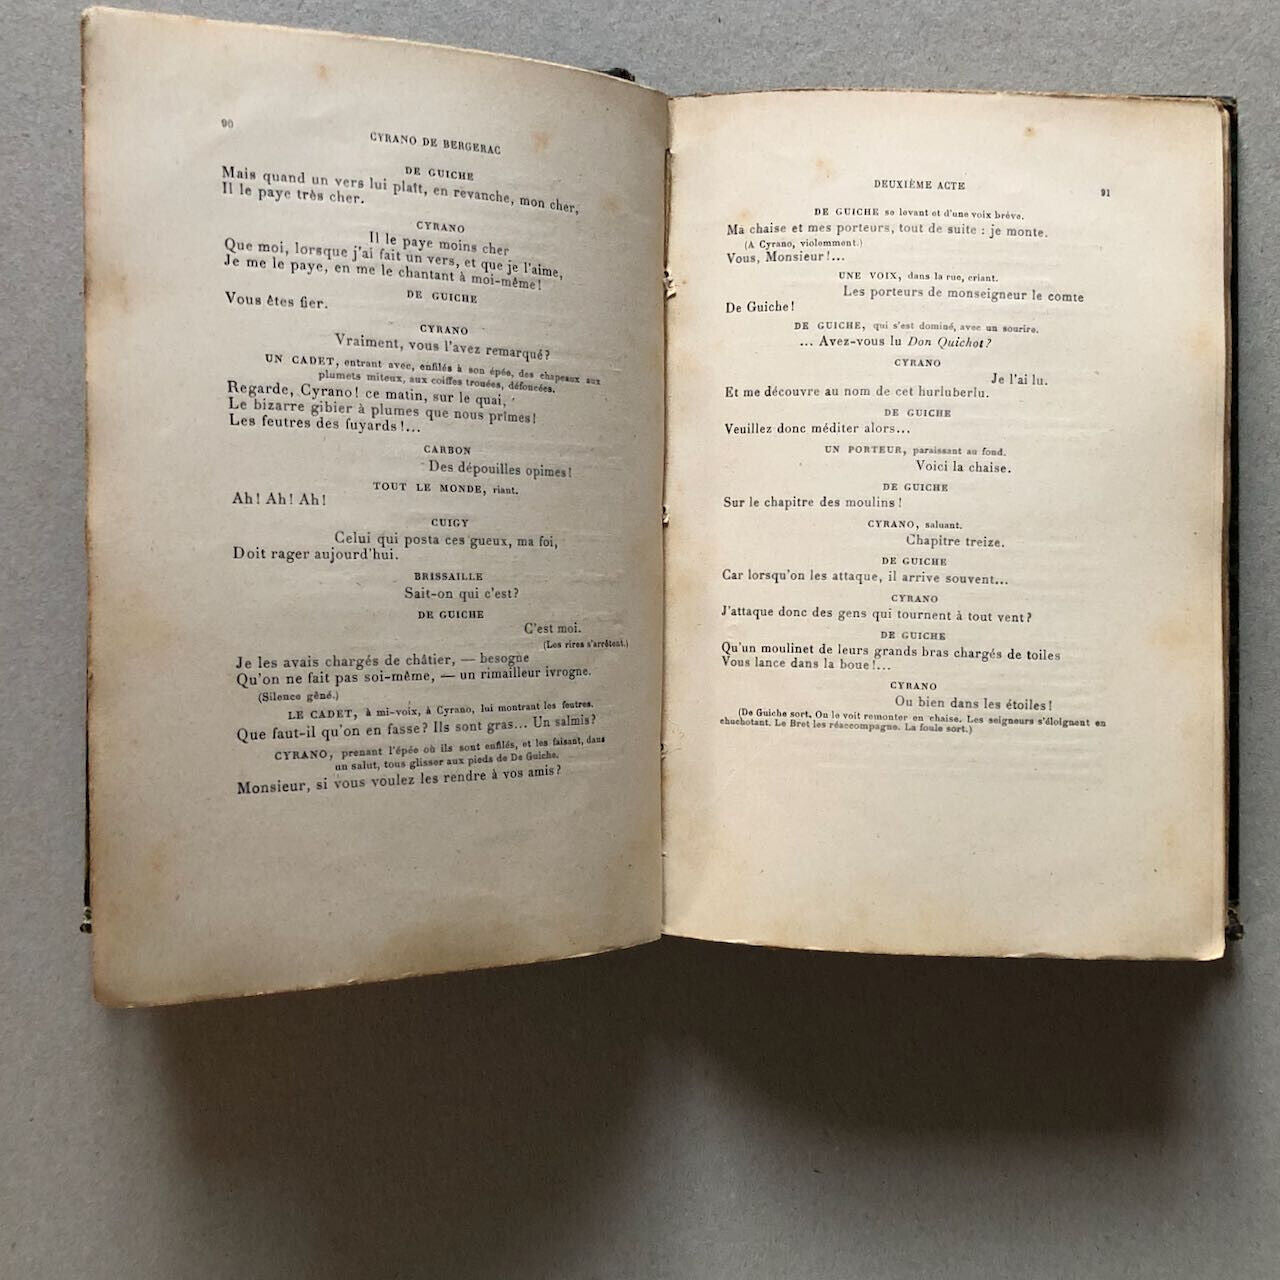 90
CYRANO DE BERGERAC
DE GUICHE
Mais quand un vers lui plaît, en revanche, mon cher,
Il le paye très cher.
CYRANO
Il le paye moins cher
Que moi, lorsque j'ai fait un vers, et que je l'aime,
Je me le paye, en me le chantant à moi-même!
DE GUICHE
Vous êtes fier.
CYRANO
Vraiment, vous l'avez remarqué?
UN CADET, entrant avec, enfilés à son épée, des chapeaux aux
plumets miteux, aux coiffes trouées, défoncées.
Regarde, Cyrano! ce matin, sur le quai,
Le bizarre gibier à plumes que nous prîmes!
Les feutres des fuyards!...
CARBON
Des dépouilles opimes!
TOUT LE MONDE, riant.
Ah! Ah! Ah!
CUIGY
Celui qui posta ces gueux, ma foi,
Doit rager aujourd'hui.
BRISSAILLE
Sait-on qui c'est?
DE GUICHE
C'est moi.
(Les rires s'arrêtent.)
Je les avais chargés de châtier, — besogne
Qu'on ne fait pas soi-même, — un rimailleur ivrogne.
(Silence gêné.)
LE CADET, à mi-voix, à Cyrano, lui montrant les feutres.
Que faut-il qu'on en fasse? Ils sont gras... Un salmis?
CYRANO, prenant l'épée où ils sont enfilés, et les faisant, dans
un salut, tous glisser aux pieds de De Guiche.
Monsieur, si vous voulez les rendre à vos amis?
DEUXIÈME ACTE
91
DE GUICHE se levant et d'une voix brève.
Ma chaise et mes porteurs, tout de suite : je monte.
(A Cyrano, violemment.)
Vous, Monsieur!...
UNE VOIX, dans la rue, criant.
Les porteurs de monseigneur le comte
De Guiche!
DE GUICHE, qui s'est dominé, avec un sourire.
... Avez-vous lu Don Quichot?
CYRANO
Je l'ai lu.
Et me découvre au nom de cet hurluberlu.
DE GUICHE
Veuillez donc méditer alors...
UN PORTEUR, paraissant au fond.
Voici la chaise.
DE GUICHE
Sur le chapitre des moulins!
CYRANO, saluant.
Chapitre treize.
DE GUICHE
Car lorsqu'on les attaque, il arrive souvent...
CYRANO
J'attaque donc des gens qui tournent à tout vent?
DE GUICHE
Qu'un moulinet de leurs grands bras chargés de toiles
Vous lance dans la boue!...
CYRANO
Ou bien dans les étoiles!
(De Guiche sort. On le voit remonter en chaise. Les seigneurs s'éloignent en
chuchotant. Le Bret les réaccompagne. La foule sort.)